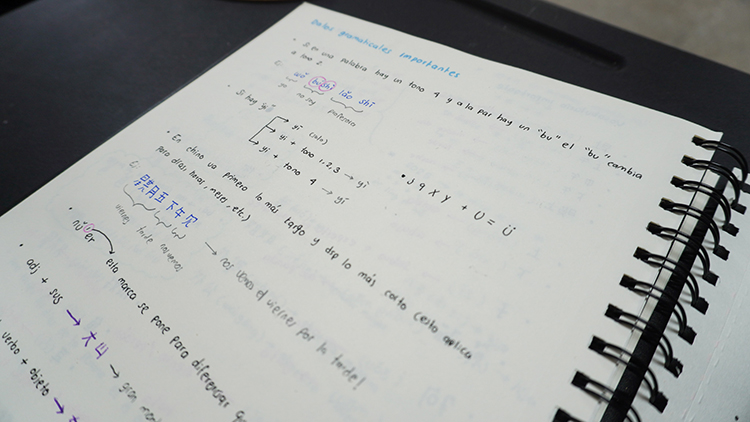 Datos gramaticales importantes
• Si en una palabra hay un tono 4 y a la par hay un "bu" el "bu" cambia
a tono 2
E: wǒ búshì lǎo shī
yo no soy profesora
• Si hay yī
yī (solo)
yi + tono 1,2,3 → yì
yi + tono 4 → yí
• J q X Y + U = Ü
• En chino va primero lo más largo y dsp lo más corto (esto aplica
para días, horas, meses, etc.)
E: 星期五下午见
viernes tarde nos vemos → nos vemos el viernes por la tarde!
• nǚ'ér esta marca se pone para diferenciar
• adj + sus → 大山 → gran
verbo + objeto →